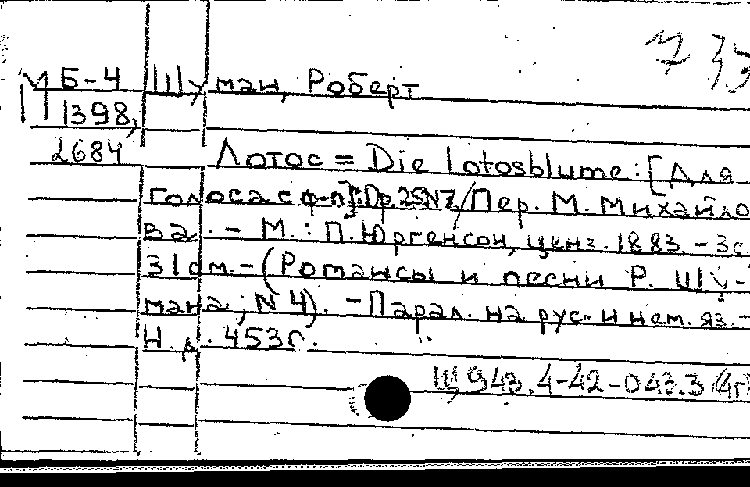 735
М Б-4 Шуман, Роберт
1398,
2684 Лотос = Die Lotosblume: [Для
голоса с ф-п]: Op. 25 N7 / Пер. М. Михайло
ва. - М.: П. Юргенсон, ценз. 1883. - 3с
31см. - (Романсы и песни Р. Шу-
мана; N 4). - Парал. на рус. и нем. яз. -
Н. д. 4530.
Щ 943.4-42-043.3